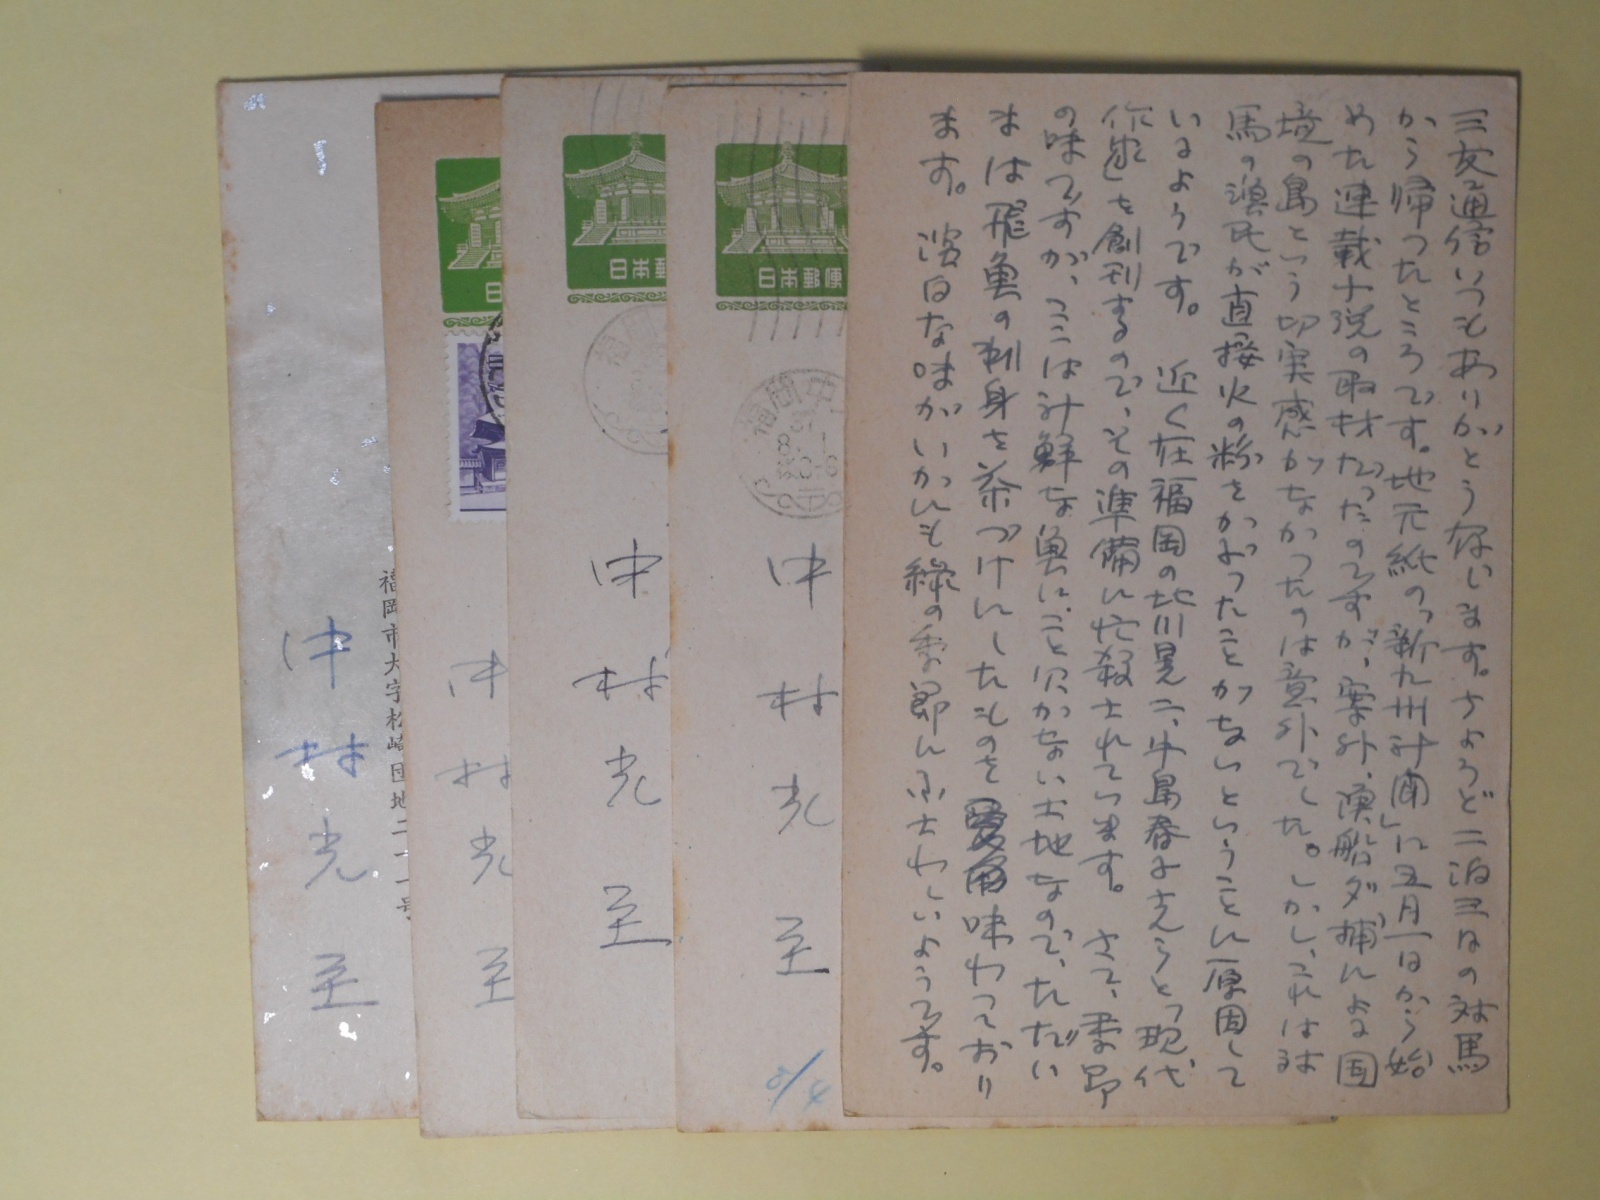 三友通信いつもありがとう存じます。ちょうど二泊三日の対馬
から帰ったところです。地元紙の「新九州新聞」に五月一日から始
めた連載小説の取材だったのですが、案外、漁船ダ捕による国
境の島という切実感がなかったのは意外でした。しかし、これは対
馬の漁民が直接火の粉をかぶったことがないということに原因して
いるようです。　近く在福岡の北川晃二、牛島春子さんらと「現代
作家」を創刊するので、その準備に忙殺されています。さて、季節
の味ですが、ここは新鮮な魚に、こと欠かない土地なので、ただい
まは飛魚の刺身を茶づけにしたものを味わっており
ます。淡白な味がいかにも緑の季節にふさわしいようです。
日本郵便
福岡中
中村光至
5/4
日本郵
中村光至
日
中村光至
福岡市大字松崎団地二一一号
中村光至